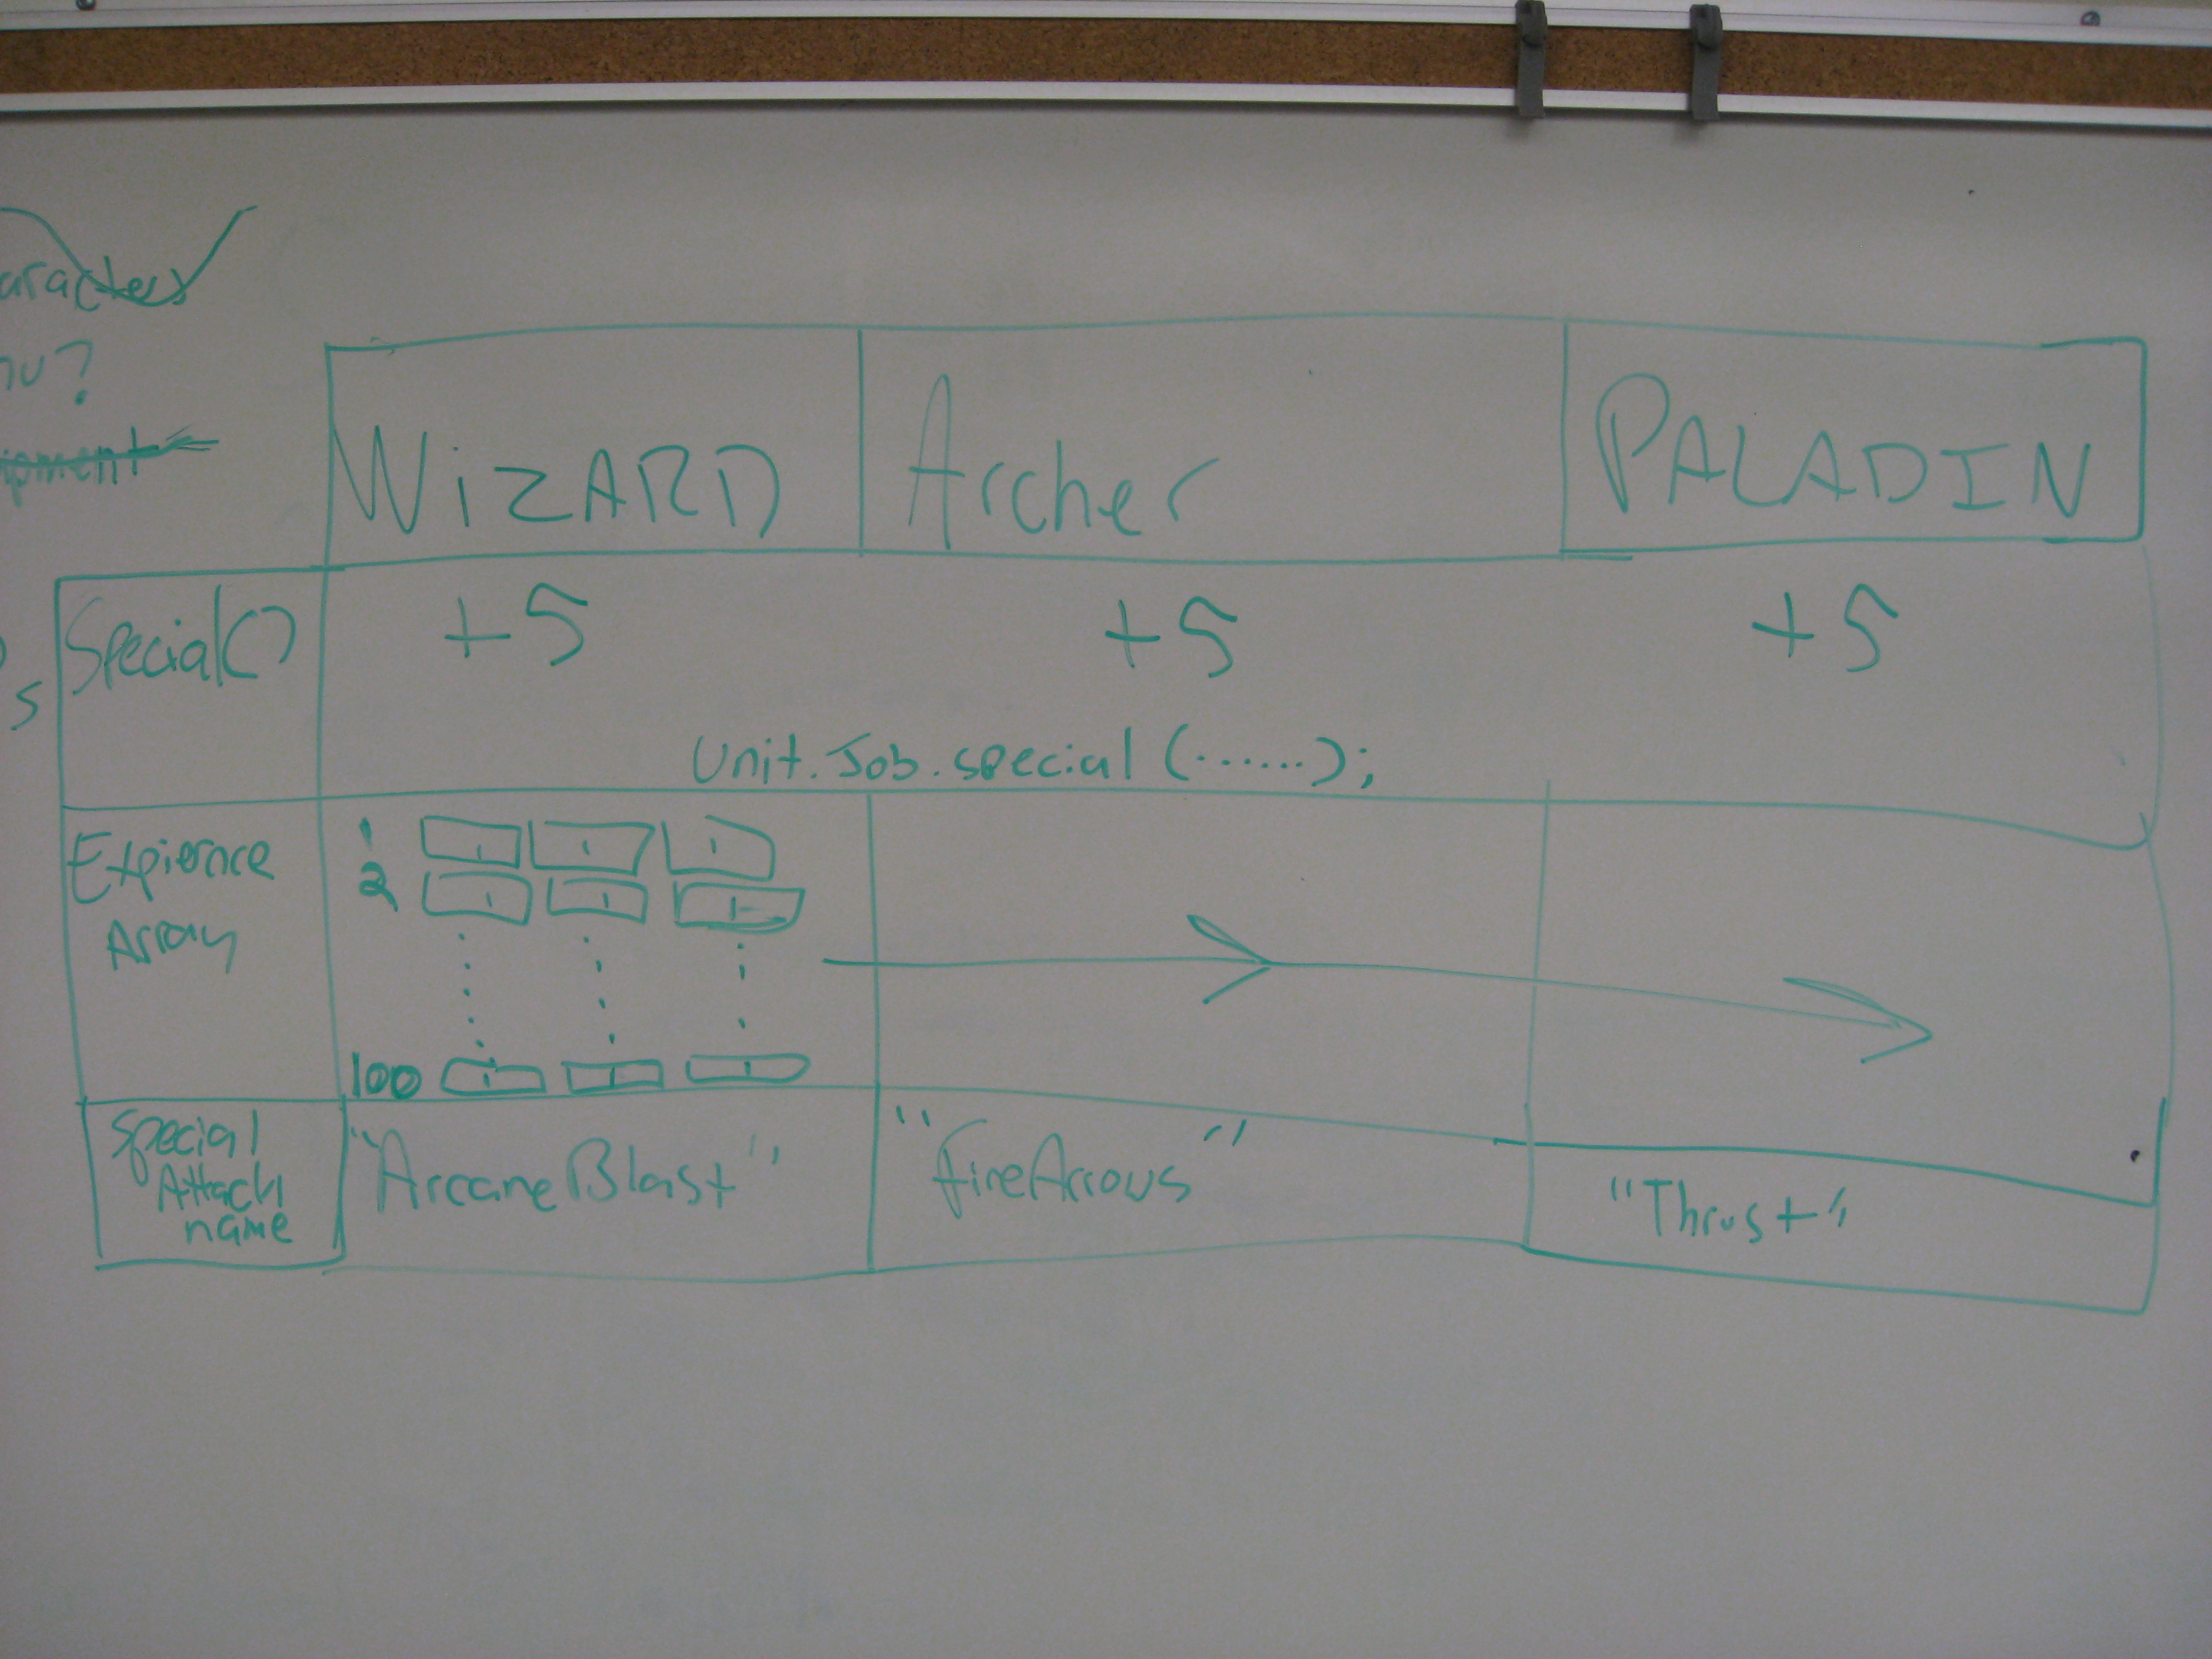 aracters
nu?
ipment
s
WiZARD Archer PALADIN
Special() +5 +5 +5
Unit.Job.special (......);
Expiernce
Array
1
2
100
Special
Attack
name
"ArcaneBlast" "fireArrows" "Thrust"